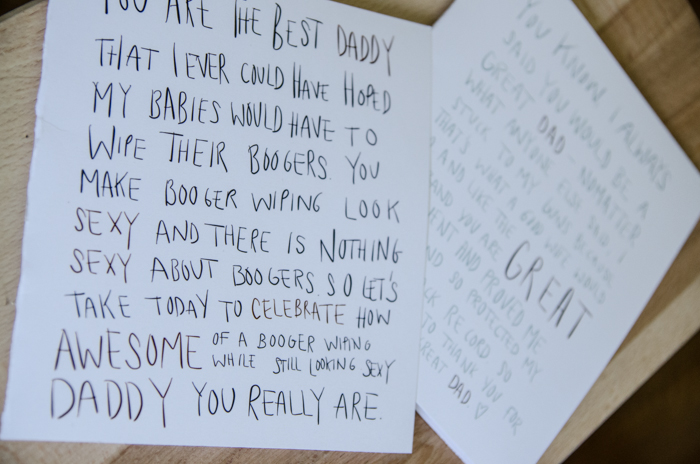 YOU ARE THE BEST DADDY
THAT I EVER COULD HAVE HOPED
MY BABIES WOULD HAVE TO
WIPE THEIR BOOGERS. YOU
MAKE BOOGER WIPING LOOK
SEXY AND THERE IS NOTHING
SEXY ABOUT BOOGERS. SO LET'S
TAKE TODAY TO CELEBRATE HOW
AWESOME OF A BOOGER WIPING
WHILE STILL LOOKING SEXY
DADDY YOU REALLY ARE.
YOU KNOW I ALWAYS
SAID YOU WOULD BE A
GREAT DAD. NO MATTER
WHAT ANYONE ELSE SAID I
STUCK TO MY GUNS BECAUSE
THAT'S WHAT A GOOD WIFE WOULD
AND LIKE THE
AND YOU ARE GREAT
AND PROVED ME
SO PROTECTED MY
RECORD SO
TO THANK YOU FOR
GREAT DAD ♡